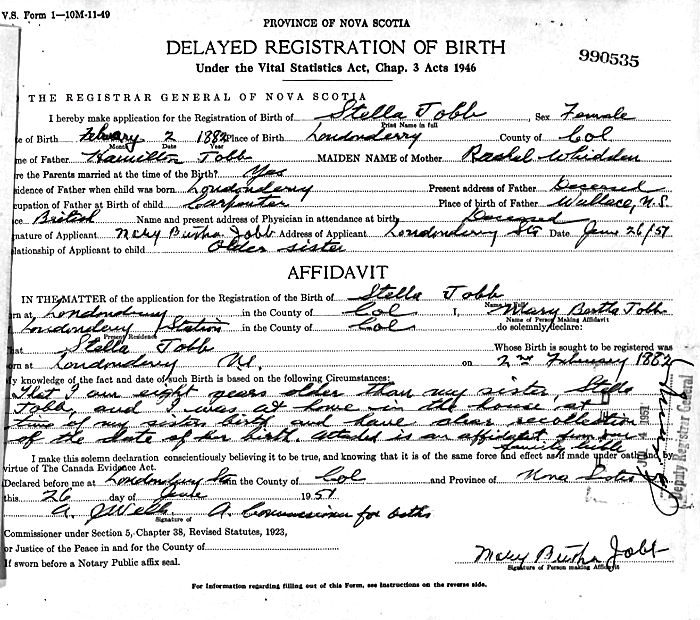 V.S. Form 1—10M-11-49
PROVINCE OF NOVA SCOTIA
DELAYED REGISTRATION OF BIRTH
990535
Under the Vital Statistics Act, Chap. 3 Acts 1946
THE REGISTRAR GENERAL OF NOVA SCOTIA
I hereby make application for the Registration of Birth of Stella Tobb Sex Female
Print Name in full
te of Birth February 2 1882 Place of Birth Londonderry County of Col
Month Date Year
me of Father Hamilton Tobb MAIDEN NAME of Mother Rachel Whidden
re the Parents married at the time of the Birth? Yes
idence of Father when child was born Londonderry Present address of Father Deceased
cupation of Father at Birth of child Carpenter Place of birth of Father Wallace, N.S.
ce British Name and present address of Physician in attendance at birth Deceased
nature of Applicant Mary Bertha Tobb Address of Applicant Londonderry Sta Date June 26/51
lationship of Applicant to child Older sister
AFFIDAVIT
IN THE MATTER of the application for the Registration of the Birth of Stella Tobb
Name in Full
rn at Londonderry in the County of Col I, Mary Bertha Tobb
Name of Person Making Affidavit
Londonderry Station in the County of Col do solemnly declare:
Present Residence
hat Stella Tobb Whose Birth is sought to be registered was
orn at Londonderry NS. on 2nd February 1882
y knowledge of the fact and date of such Birth is based on the following Circumstances:
That I am eight years older than my sister, Stella
Tobb, and I was at home in the house at
time of my sisters birth and have clear recollection
of the date of her birth. Attached is an affidavit from
family bible
I make this solemn declaration conscientiously believing it to be true, and knowing that it is of the same force and effect as if made under oath and by
virtue of The Canada Evidence Act.
Declared before me at Londonderry Sta in the County of Col and Province of Nova Scotia
this 26 day of June 1951
A. J Wells A Commissioner for oaths
Signature of
Commissioner under Section 5, Chapter 38, Revised Statutes, 1923,
or Justice of the Peace in and for the County of
If sworn before a Notary Public affix seal.
Mary Bertha Tobb
Signature of Person making Affidavit
For Information regarding filling out of this Form, see Instructions on the reverse side.
Deputy Registrar General